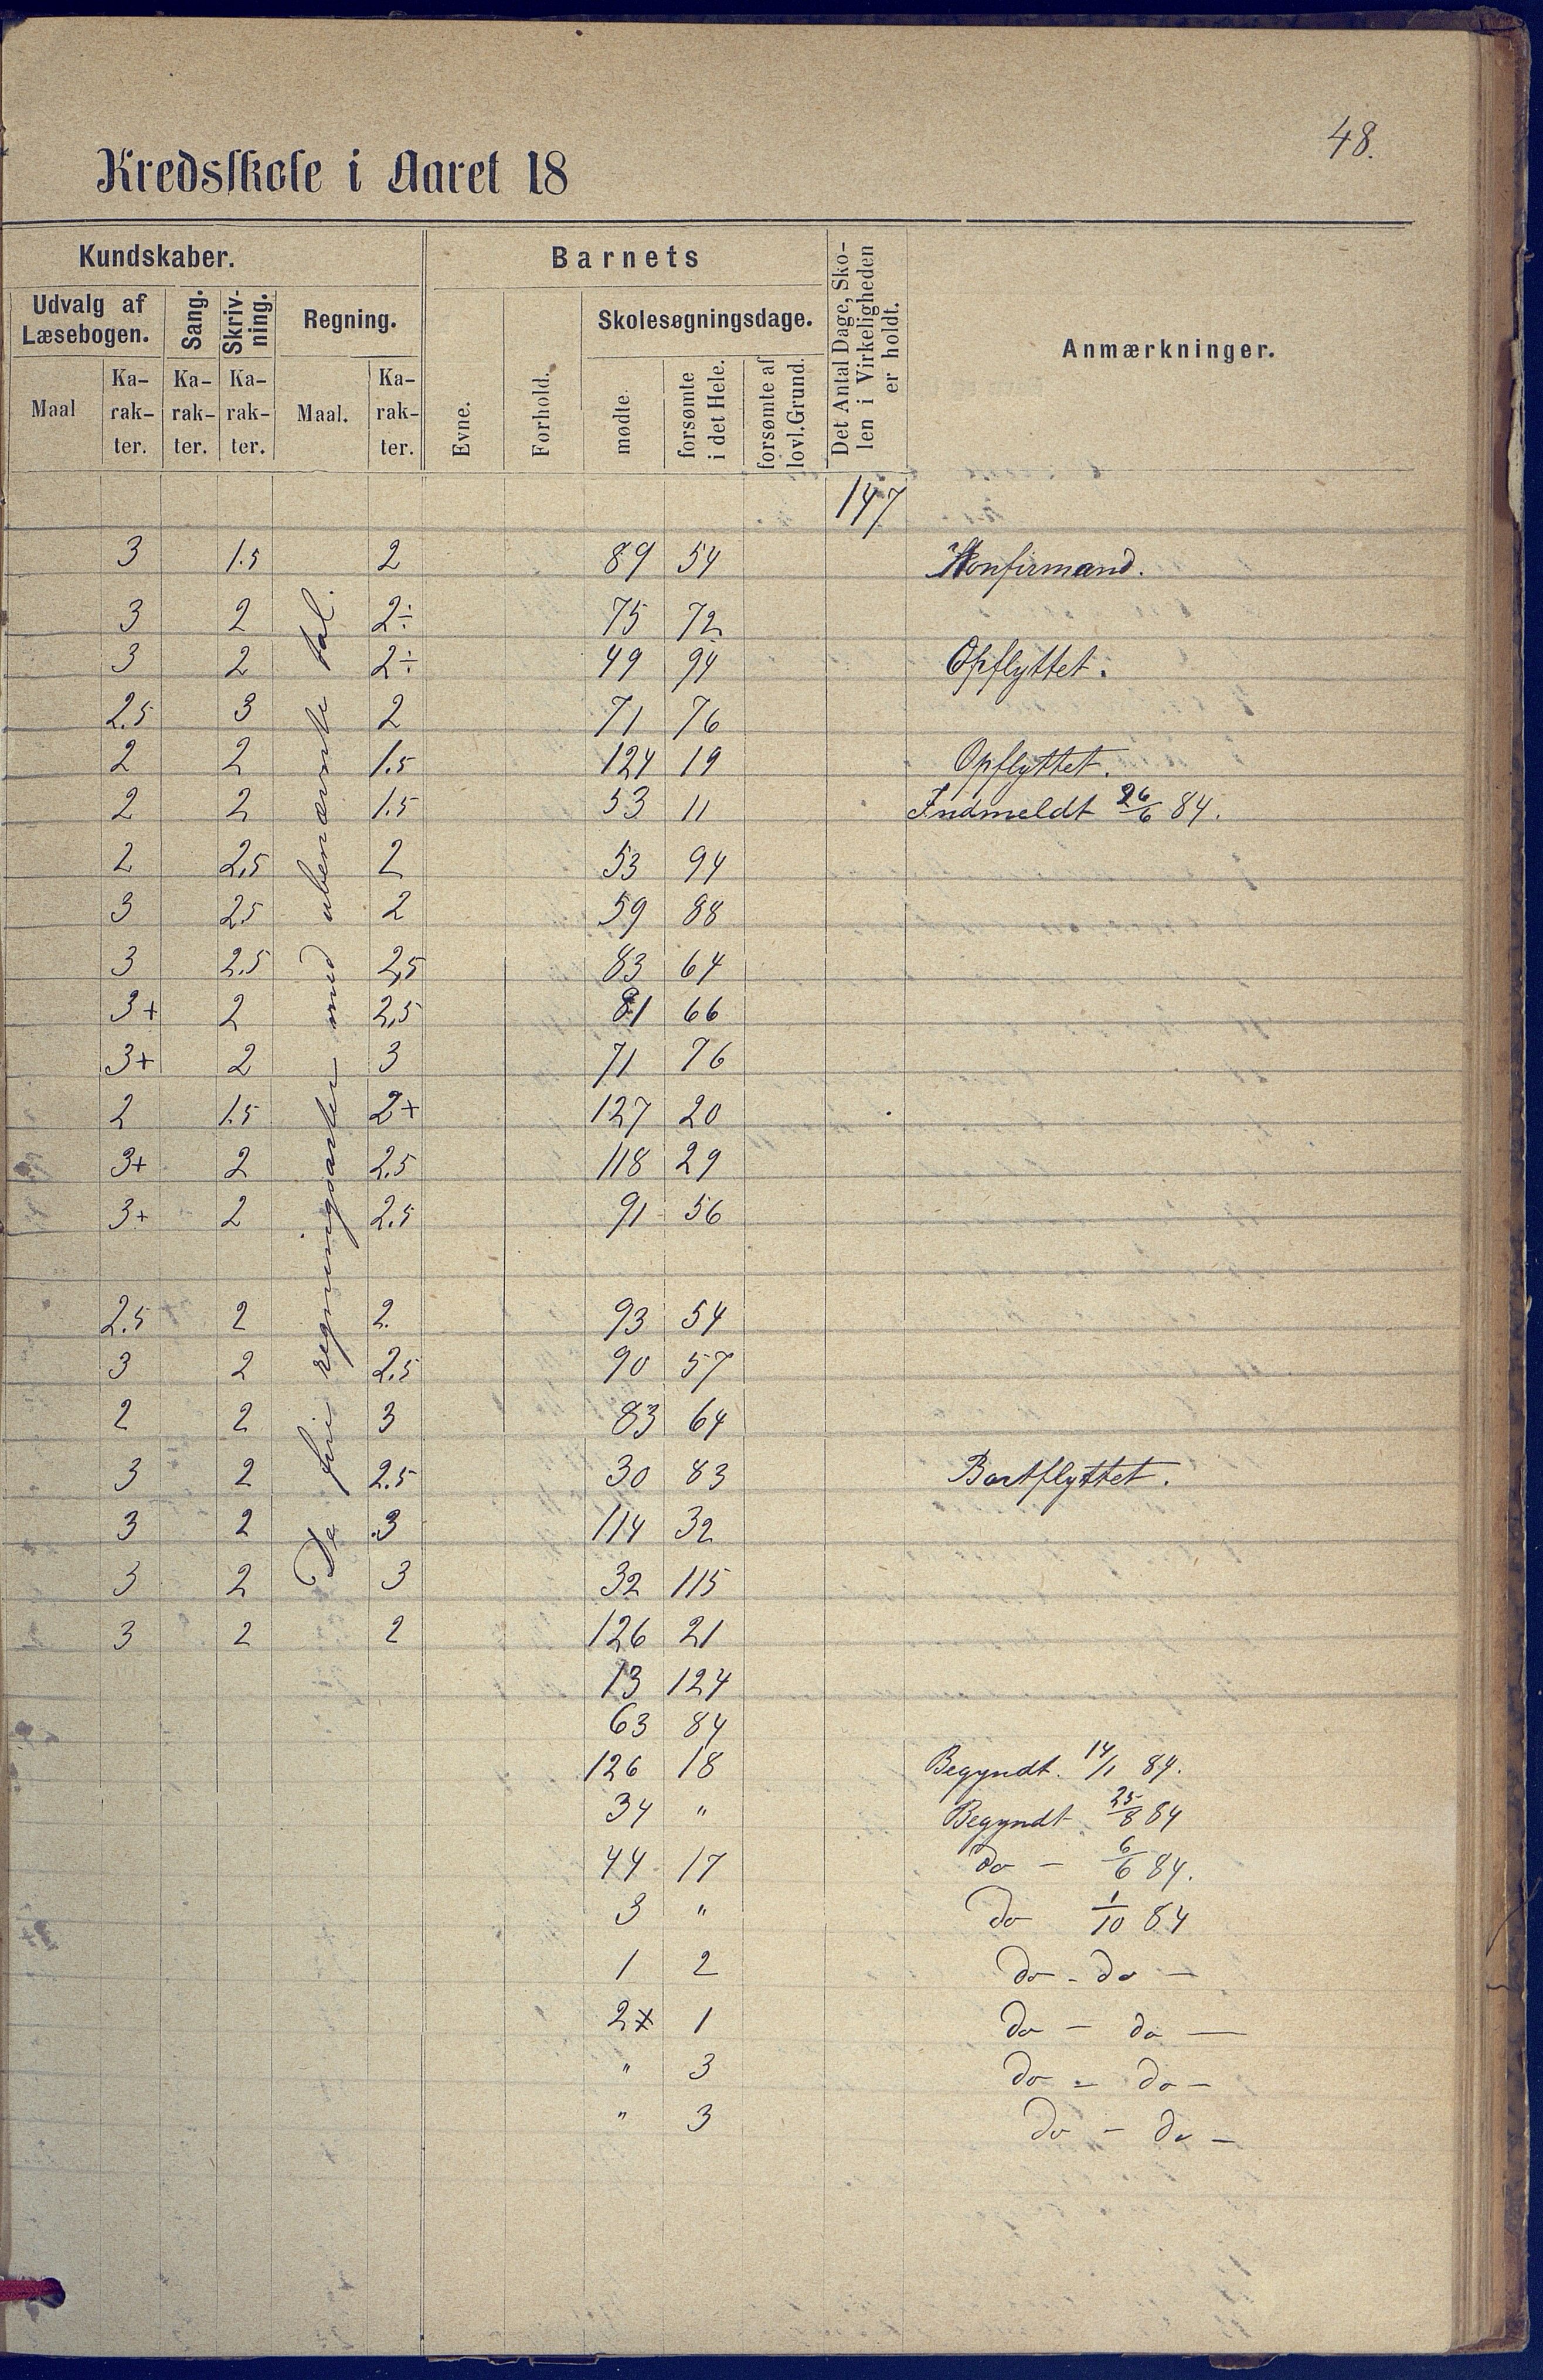 48.
Kredsskole i Aaret 18
Kundskaber.
Barnets
Det Antal Dage, Sko-
len i Virkeligheden
er holdt.
Anmærkninger.
Udvalg af
Læsebogen.
Sang.
Skriv-
ning.
Regning.
Evne.
Forhold.
Skolesøgningsdage.
Maal
Ka-
rak-
ter.
Ka-
rak-
ter.
Ka-
rak-
ter.
Maal.
Ka-
rak-
ter.
mødte.
forsømte
i det Hele.
forsømte af
lovl. Grund.
De fire regningsarter med ubenævnte tal.
147
3 1.5 2 89 54 Konfirmand.
3 2 2÷ 75 72
3 2 2÷ 49 94 Opflyttet.
2.5 3 2 71 76
2 2 1.5 124 19 Opflyttet.
2 2 1.5 53 11 Indmeldt 26/6 84.
2 2,5 2 53 94
3 25 2 59 88
3 2.5 2,5 83 64
3+ 2 2,5 81 66
3+ 2 3 71 76
2 1.5 2+ 127 20
3+ 2 2.5 118 29
3+ 2 2.5 91 56
2.5 2 2. 93 54
3 2 2.5 90 57
2 2 3 83 64
3 2 2.5 30 83 Bortflyttet.
3 2 .3 114 32
3 2 3 32 115
3 2 2 126 21
13 124
63 84
126 18 Begyndt. 14/1 84.
34 " Begyndt 25/8 84
44 17 do - 6/6 84.
3 " do 1/10 84
1 2 do - do -
2 1 do - do -
" 3 do - do -
" 3 do - do -